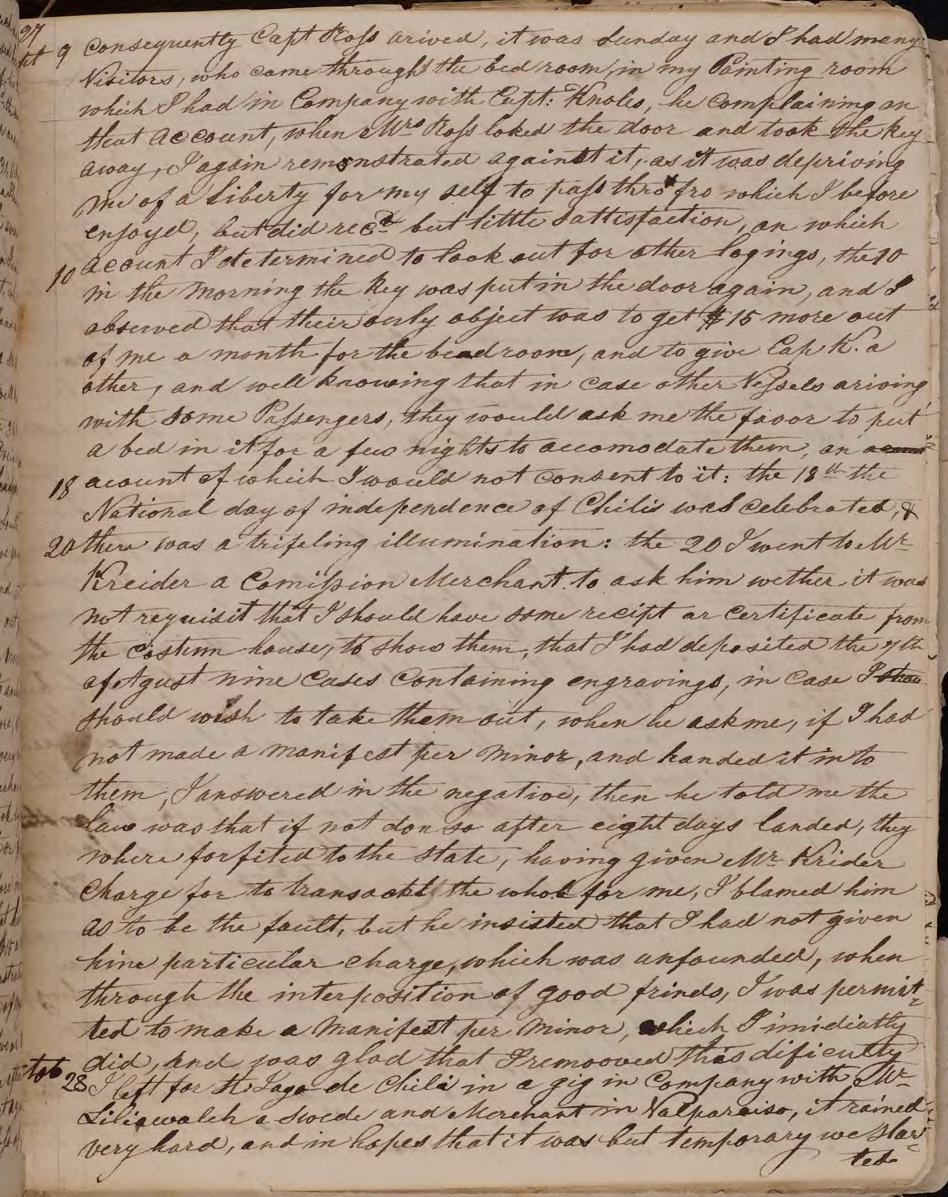 27
9 consequently Capt Ross arived, it was Sunday and I had meny
Visitors, who came through the bed room, in my Painting room
which I had in Company with Capt: Knoles, he complaining on
that account, when Mrs Ross loked the door and took the key
away, I again remonstrated against it, as it was depriving
me of a Liberty for my self to pass thro fro which I before
enjoyed, but did recd but little Sattisfaction, on which
10 account I determined to look out for other logings, the 10
in the morning the key was put in the door again, and I
observed that their only object was to get $ 15 more out
of me a month for the bead room, and to give Cap K. a
other, and well knowing that in case other Vessels ariving
with some Passengers, they would ask me the favor to put
a bed in it for a few nights to accomodate them, on
18 acount of which I would not consent to it: the 18th the
National day of independence of Chili was celebrated, &
20 there was a trifeling illumination: the 20 I went to Mr
Kreider a Comission Merchant to ask him wether it was
not requisit that I should have some recipt or certificate from
the costum house, to show them, that I had deposited the 7th
of Agust nine Cases containing engravings, in case I
should wish to take them out, when he ask me, if I had
not made a manifest per minor, and handed it in to
them, I answered in the negative, then he told me the
law was that if not don so after eight days landed, they
where forfited to the state, having given Mr Krider
Charge for to transackt the whol for me, I blamed him
as to be the fault, but he insisted that I had not given
hine particular charge, which was unfounded, when
through the interposition of good frinds, I was permit-
ted to make a Manifest per Minor, which I imidiatly
did, and was glad that I remooved this dificulty
28 I left for St Iago de Chili in a gig in Company with Mr
Liliewalch a Swede and Merchant in Valparaiso, it rained
very hard, and in hopes that it was but temporary we star-
ted